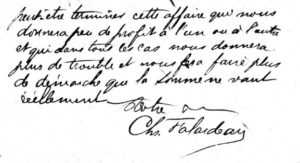 peut être terminer cette affaire que nous
donnera peu de profit à l'un ou à l'autre
et qui dans tous les cas nous donnera
plus de trouble et nous fera faire plus
de démarche que la somme ne vaut
réellement
Votre
Chs. Falardeau